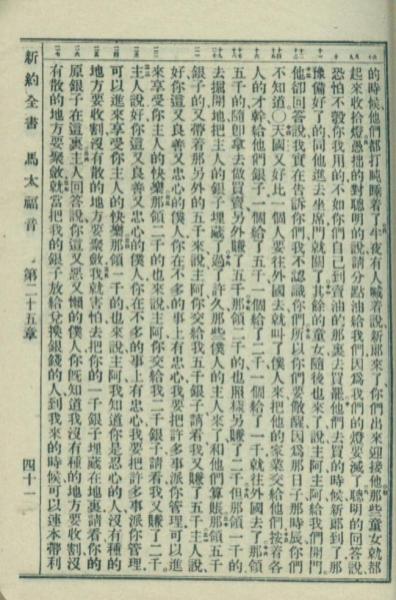 的時候他們都打盹睡着了半夜有人喊着說新郎來了你們出來迎接他那些童女就都
起來收拾燈愚拙的對聰明的說請分點油給我們因爲我們的燈要滅了聰明的回答說
恐怕不彀你我用的不如你們自己到賣油的那裏去買罷他們去買的時候新郎到了那
豫備好了的同他進去坐席門就關了其餘的童女隨後也來了說主阿主阿給我們開門
他卻回答說我實在告訴你們我不認識你們所以你們要儆醒因爲那日子那時辰你們
不知道〇天國又好比一個人要往外國去就叫了僕人來把他的家業交給他們按着各
人的才幹給他們銀子一個給了五千一個給了二千一個給了一千就往外國去了那領
五千的隨卽拿去做買賣另外賺了五千那領二千的也照樣另賺了二千但那領一千的
去掘開地把主人的銀子埋藏了過了許久那些僕人的主人來了和他們算賬那領五千
銀子的又帶着那另外的五千來說主阿你交給我五千銀子請看我又賺了五千主人說
好你這又良善又忠心的僕人你在不多的事上有忠心我要把許多事派你管理可以進
來享受你主人的快樂那領二千的也來說主阿你交給我二千銀子請看我又賺了二千
主人說好你這又良善又忠心的僕人你在不多的事上有忠心我要把許多事派你管理
可以進來享受你主人的快樂那領一千的也來說主阿我知道你是忍心的人沒有種的
地方要收割沒有散的地方要聚斂我就害怕去把你的一千銀子埋藏在地裏請看你的
原銀子在這裏主人回答說你這又惡又懶的僕人你旣知道我沒有種的地方要收割沒
有散的地方要聚斂就當把我的銀子放給兌換銀錢的人到我來的時候可以連本帶利
新約全書 馬太福音 第二十五章 四十一